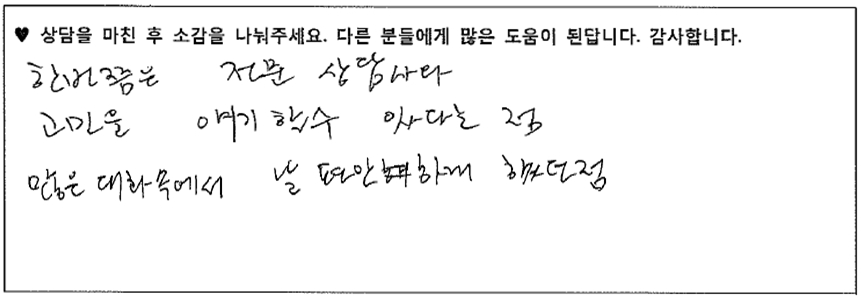 ♥ 상담을 마친 후 소감을 나눠주세요. 다른 분들에게 많은 도움이 된답니다. 감사합니다.
한번쯤은 전문 상담사와
고민을 얘기 할수 있다는 점
많은 대화속에서 날 편안하게 했던점